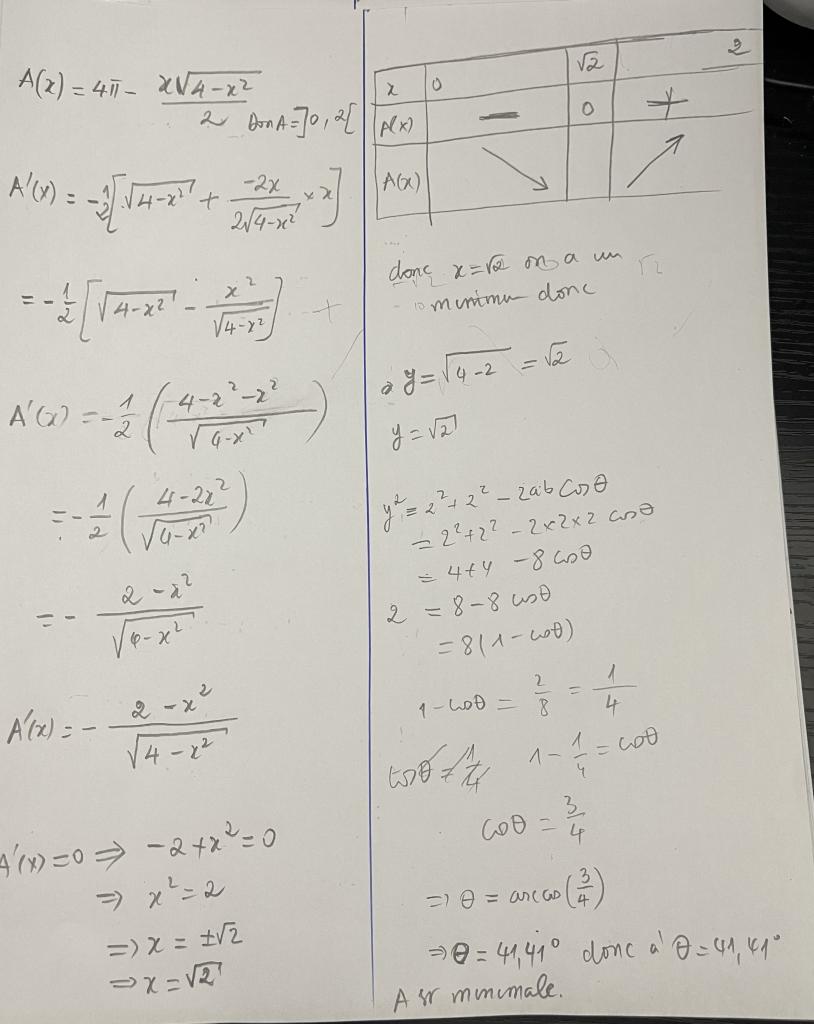 A(x) = 4π - x√(4-x²)/2 DomA = ]0, 2[
A'(x) = -1/2 [√(4-x²) + -2x/(2√(4-x²)) × x]
= -1/2 [√(4-x²) - x²/√(4-x²)]
A'(x) = -1/2 ((4-x²-x²)/√(4-x²))
= -1/2 ((4-2x²)/√(4-x²))
= - (2-x²)/√(4-x²)
A'(x) = - (2-x²)/√(4-x²)
A'(x) = 0 ⇒ -2+x² = 0
⇒ x² = 2
⇒ x = ±√2
⇒ x = √2
x 0 √2 2
A'(x) — 0 +
A(x) ↘ ↗
donc x=√2 on a un
minimum donc
y = √(4-2) = √2
y = √2
y² = 2²+2² - 2ab cosθ
= 2²+2² - 2×2×2 cosθ
= 4+4 - 8 cosθ
2 = 8-8 cosθ
= 8(1-cosθ)
1-cosθ = 2/8 = 1/4
cosθ = 1/4 1 - 1/4 = cosθ
cosθ = 3/4
⇒ θ = arccos(3/4)
⇒ θ = 41,41° donc à θ = 41,41°
A est minimale.